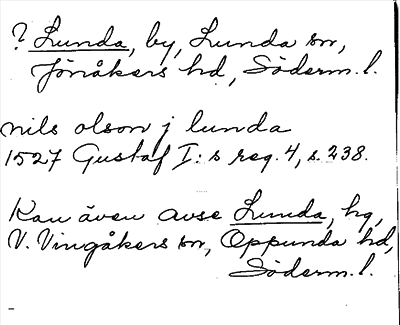 ? Lunda, by, Lunda sn,
Jönåkers hd, Söderm. l.
nils olson j lunda
1527 Gustaf I:s reg. 4, s. 238.
Kan även avse Lunda, hg,
V. Vingåkers sn, Oppunda hd,
Söderm. l.